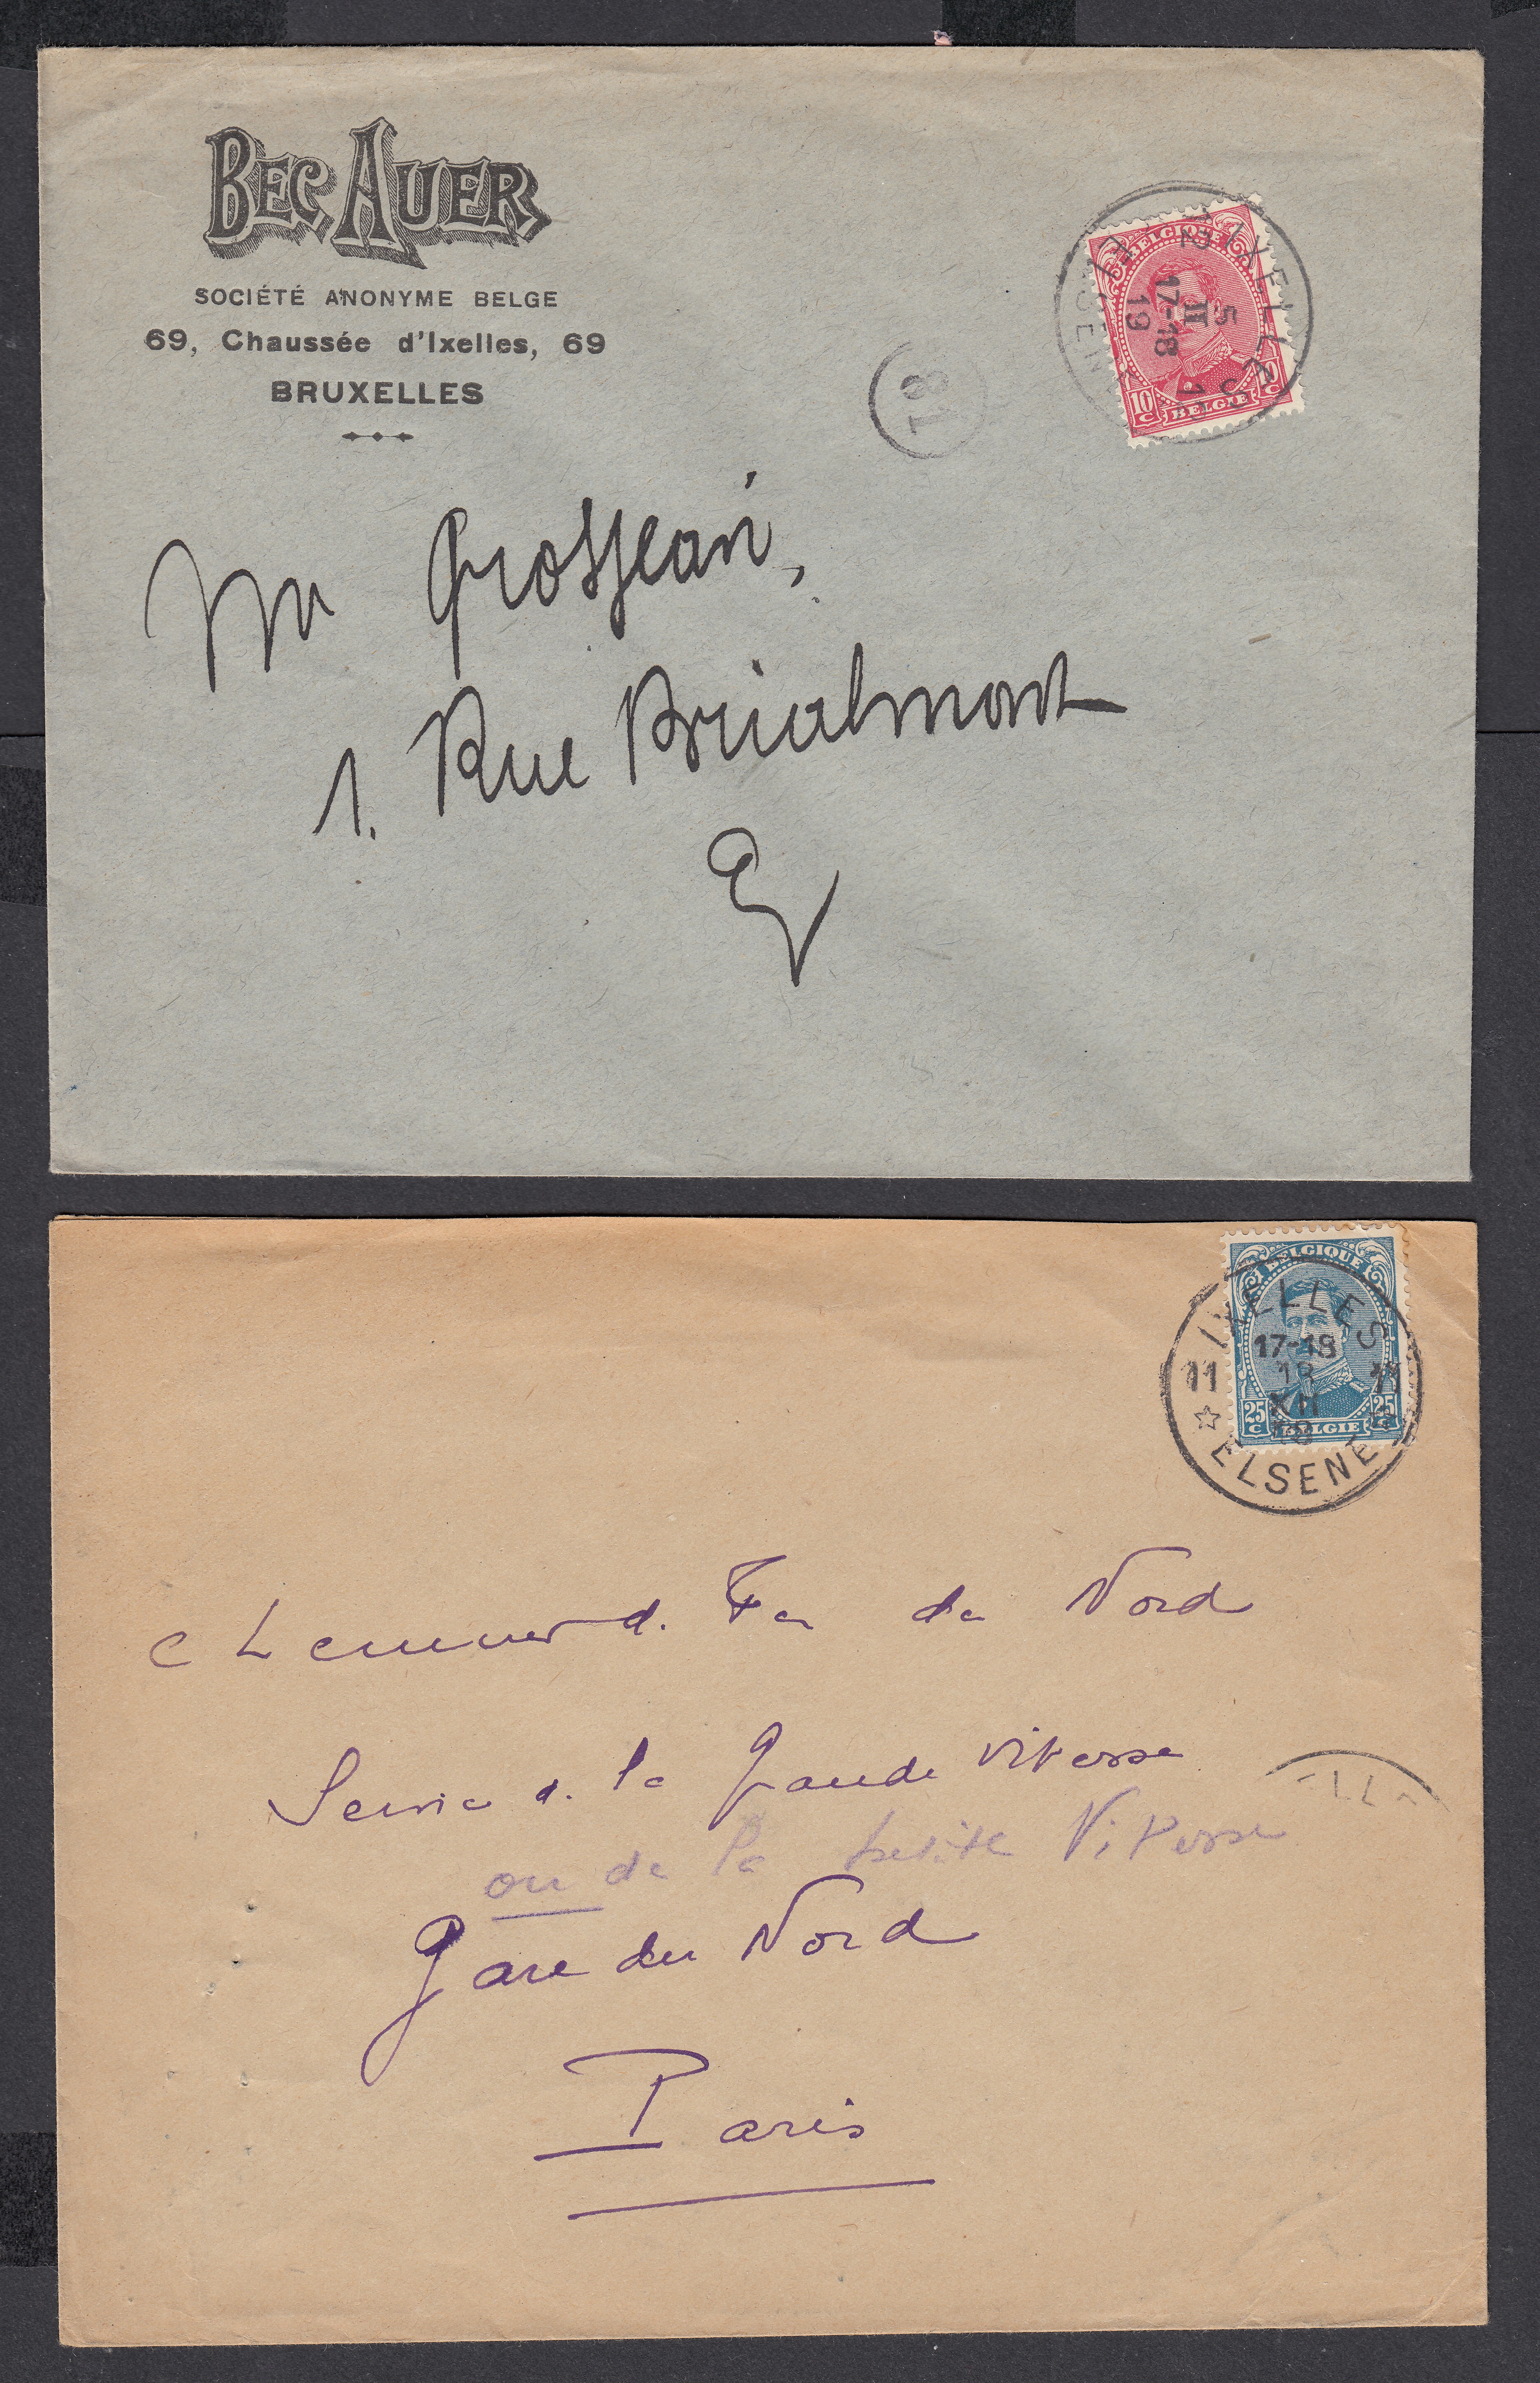 BEC AUER
SOCIÉTÉ ANONYME BELGE
69, Chaussée d'Ixelles, 69
BRUXELLES
BELGIQUE
IXELLES
5
II
17-18
19
10 C BELGIE C
18
Mr Grosjean,
1. Rue Brialmont
BELGIQUE
IXELLES
17-18
11 18 11
XII
18
25 C BELGIE 25 C
ELSENE
Chemin d. Fer du Nord
Service d. la Grande Vitesse
ou de la petite Vitesse
Gare du Nord
Paris